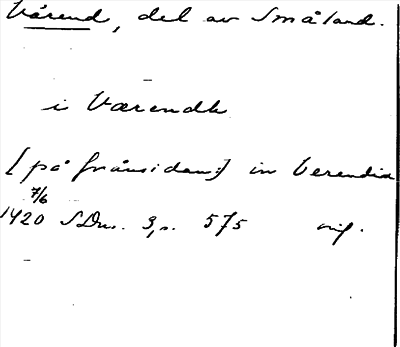 Värend, del av Småland.
i Værendh
[på frånsidan:] in Verendia
7/6
1420 SDns. 3, s. 575 orig.